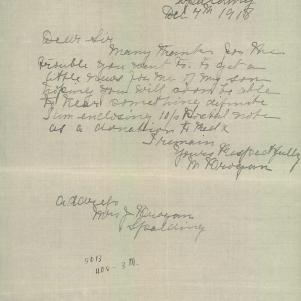 Spalding
Dec 4th 1918
Dear Sir
Many thanks for the
trouble you went to to get a
little news for me of my son
hoping you will soon be able
to hear something definite
I am enclosing 10/s Postal note
as a donation to Red X
I remain
Yours Respectfully
M Drogan
address
Mrs J Drogan
Spalding
5013